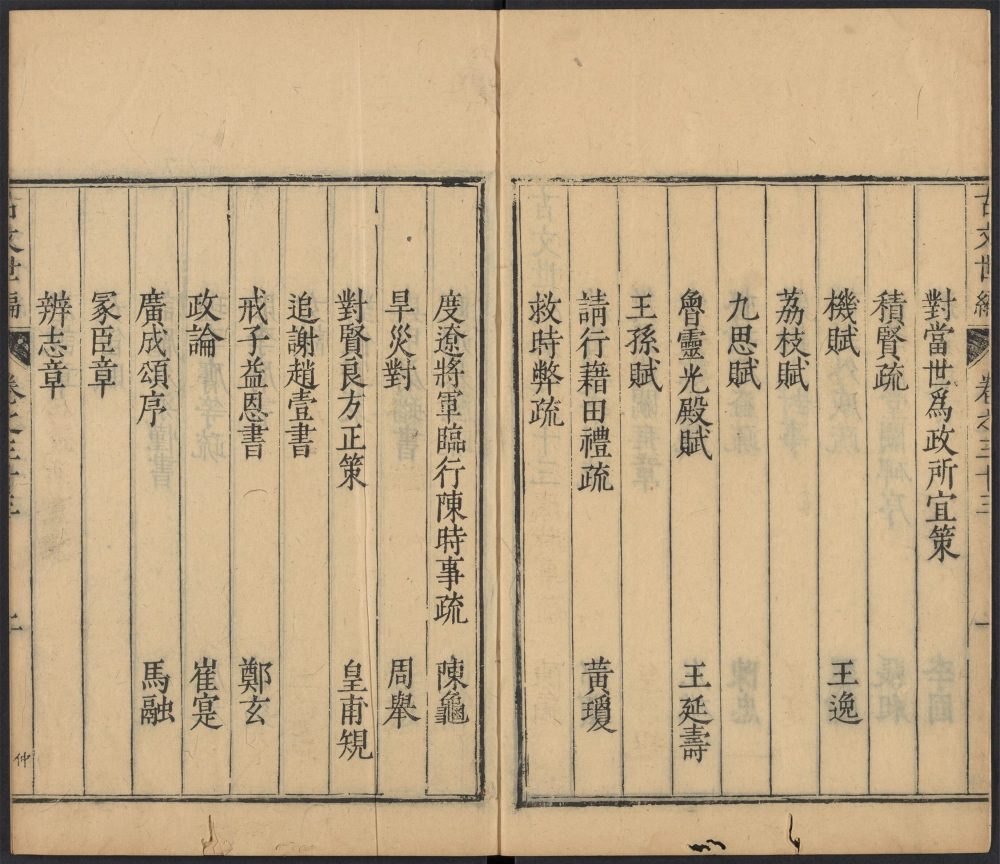 古文世編 卷之三十三 一
對當世爲政所宜策
積賢疏
機賦 王逸
荔枝賦
九思賦
魯靈光殿賦 王延壽
王孫賦
請行藉田禮疏 黃瓊
救時弊疏
度遼將軍臨行陳時事疏 陳龜
旱災對 周舉
對賢良方正策 皇甫規
追謝趙壹書
戒子益恩書 鄭玄
政論 崔寔
廣成頌序 馬融
冢臣章
辨志章
古文世編 卷之三十三
仲